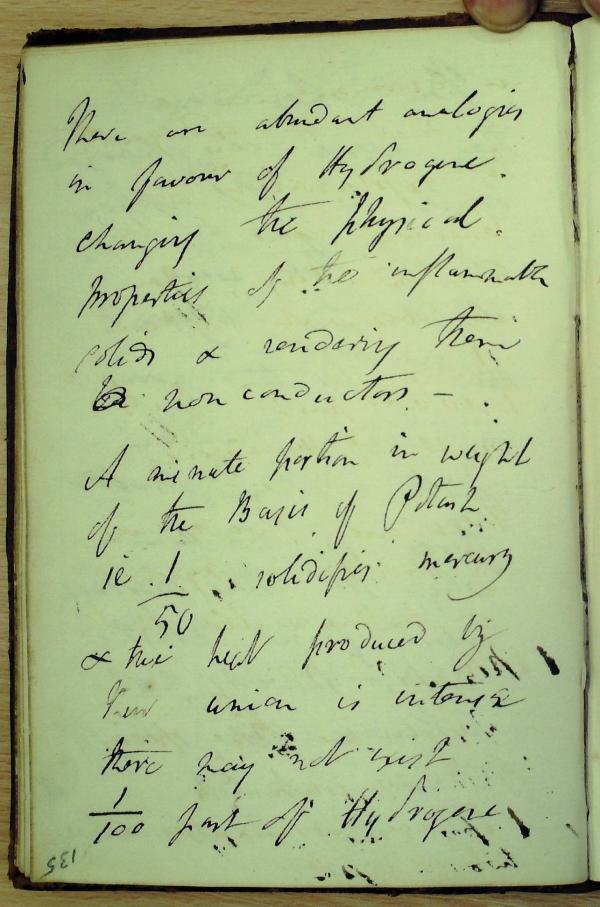 There are abundant analogies
in favour of Hydrogene
changing the physical
properties of the inflammable
solids & rendering them
non conductors -
A minute portion in weight
of the Basis of Potash
ie 1/50 solidifies mercury
& the heat produced by
their union is intense
there may not exist
1/100 part of Hydrogene
135